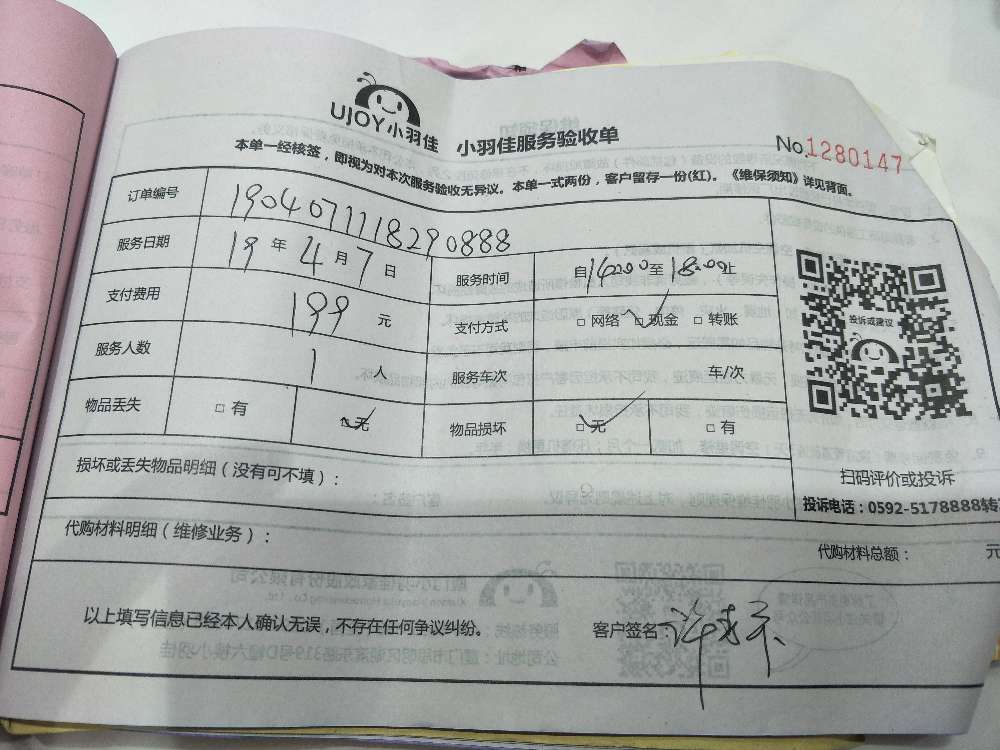 UJOY小羽佳 小羽佳服务验收单
No1280147
本单一经核签，即视为对本次服务验收无异议。本单一式两份，客户留存一份(红)。《维保须知》详见背面。
订单编号 1904071118290888
服务日期 19 年 4 月 7 日 服务时间 自14:00至18:00止
支付费用 199 元 支付方式 □ 网络 □ 现金 □ 转账
服务人数 1 人 服务车次 车/次
物品丢失 □ 有 □ 无 物品损坏 □ 无 □ 有
投诉或建议
扫码评价或投诉
投诉电话：0592-5178888转
损坏或丢失物品明细（没有可不填）：
代购材料明细（维修业务）：
代购材料总额： 元
以上填写信息已经本人确认无误，不存在任何争议纠纷。 客户签名：